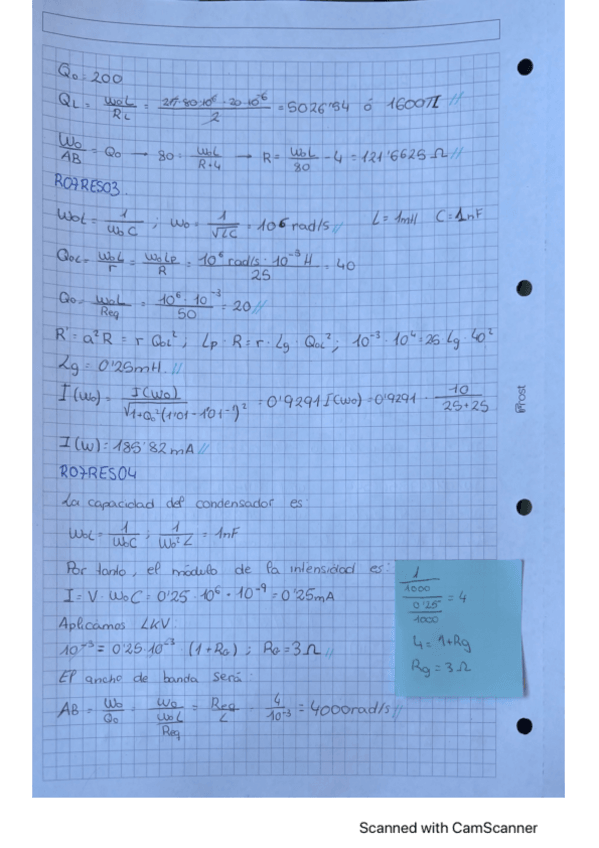 Q₀ = 200
Q_L = W₀L/R_L = 2π·80·10⁶·20·10⁻⁶/2 = 5026'54 ó 1600π //
W₀/AB = Q₀ → 80 = W₀L/R+4 → R = W₀L/80 - 4 = 121'6625 Ω //
R07RES03.
W₀L = 1/W₀C ; W₀ = 1/√LC = 10⁶ rad/s // L = 1mH C = 1nF
Q₀L = W₀L/r = W₀Lp/R = 10⁶ rad/s · 10⁻³ H/25 = 40
Q₀ = W₀L/Req = 10⁶·10⁻³/50 = 20 //
R' = a²R = r Q₀L² ; Lp · R = r · Lg · Q₀L² ; 10⁻³ · 10⁴ = 25 Lg · 40²
Lg = 0'25mH. //
I(W₀) = I(W₀)/√1+Q₀²(1'01 - 1'01⁻¹)² = 0'9291 I(W₀) = 0'9291 · 10/25+25
I(W) = 185'82 mA //
R07RES04
La capacidad del condensador es:
W₀L = 1/W₀C ; 1/W₀²L = 1nF
Por tanto, el módulo de la intensidad es:
I = V · W₀C = 0'25 · 10⁶ · 10⁻⁹ = 0'25mA
Aplicamos LKV:
10⁻³ = 0'25·10⁻³ (1+RG) ; RG = 3Ω //
El ancho de banda será:
AB = W₀/Q₀ = W₀/(W₀L/Req) = Req/L = 4/10⁻³ = 4000rad/s //
(1/1000)/(0'25/1000) = 4
4 = 1+Rg
Rg = 3Ω
Post
Scanned with CamScanner